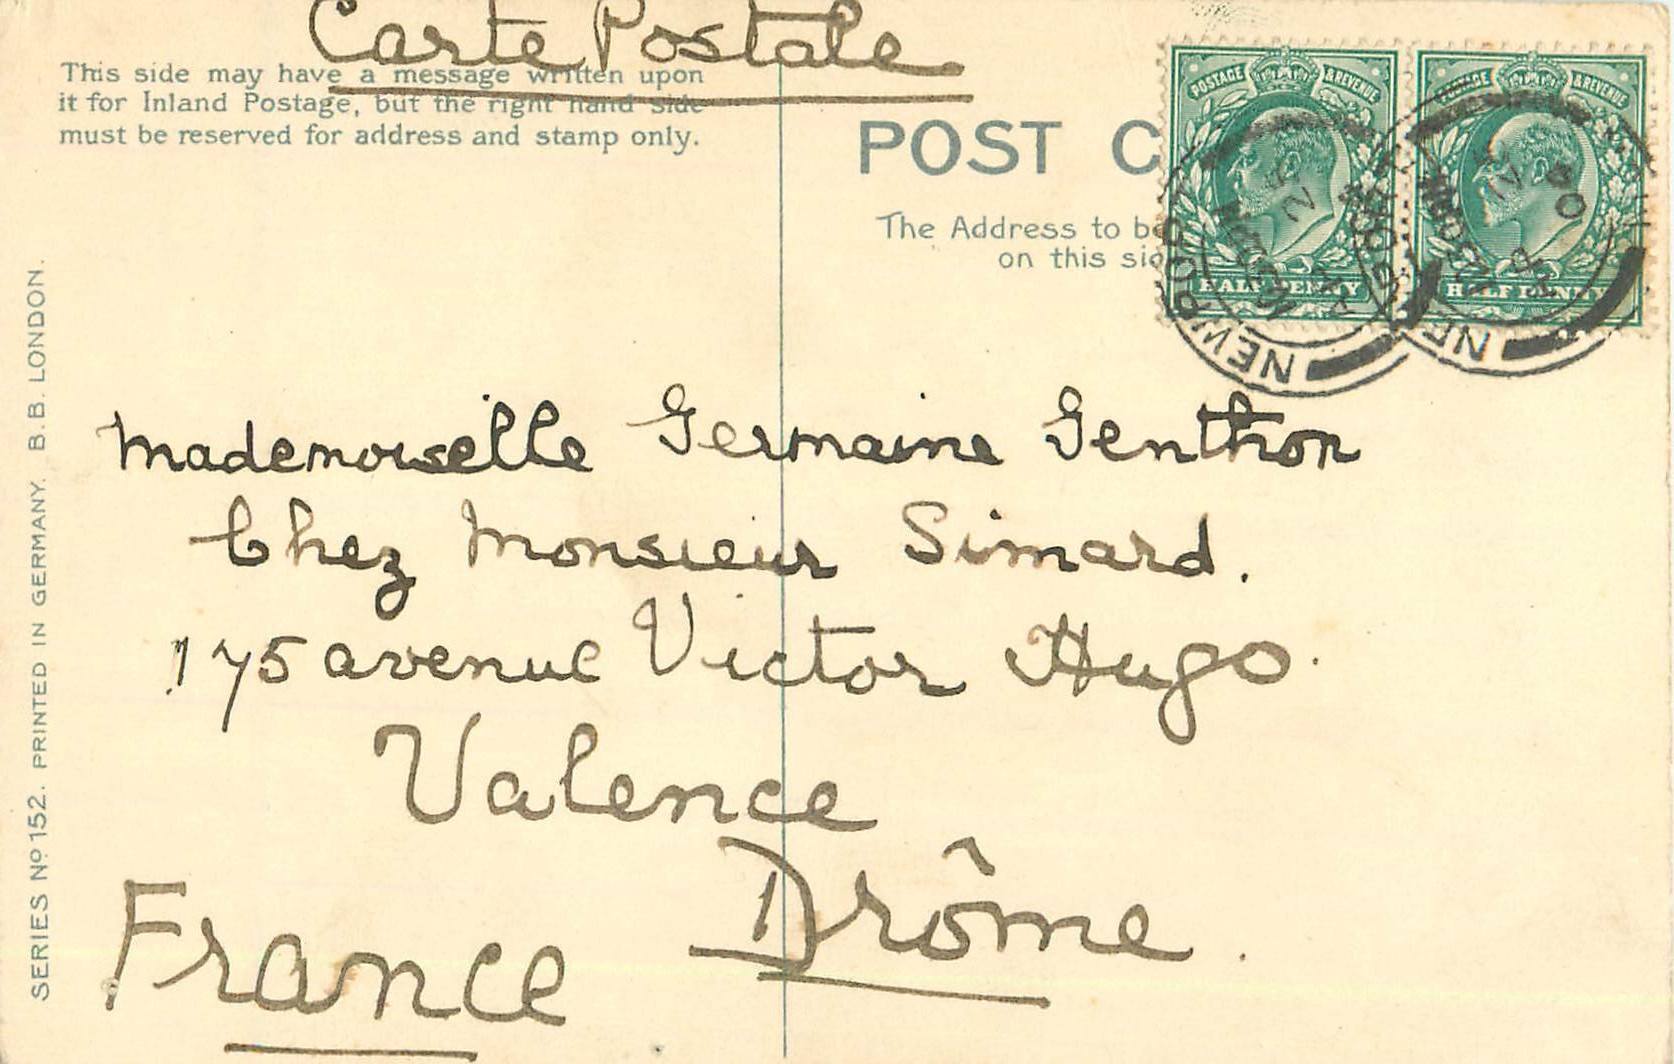 Carte Postale
This side may have a message written upon
it for Inland Postage, but the right hand side
must be reserved for address and stamp only.
POST C
The Address to be
on this sid
POSTAGE & REVENUE
HALF PENNY
POSTAGE & REVENUE
HALF PENNY
NEWPORT
NE
Mademoiselle Germaine Genthon
Chez Monsieur Simard.
175 avenue Victor Hugo.
Valence
Drôme.
France
SERIES No 152. PRINTED IN GERMANY. B.B. LONDON.